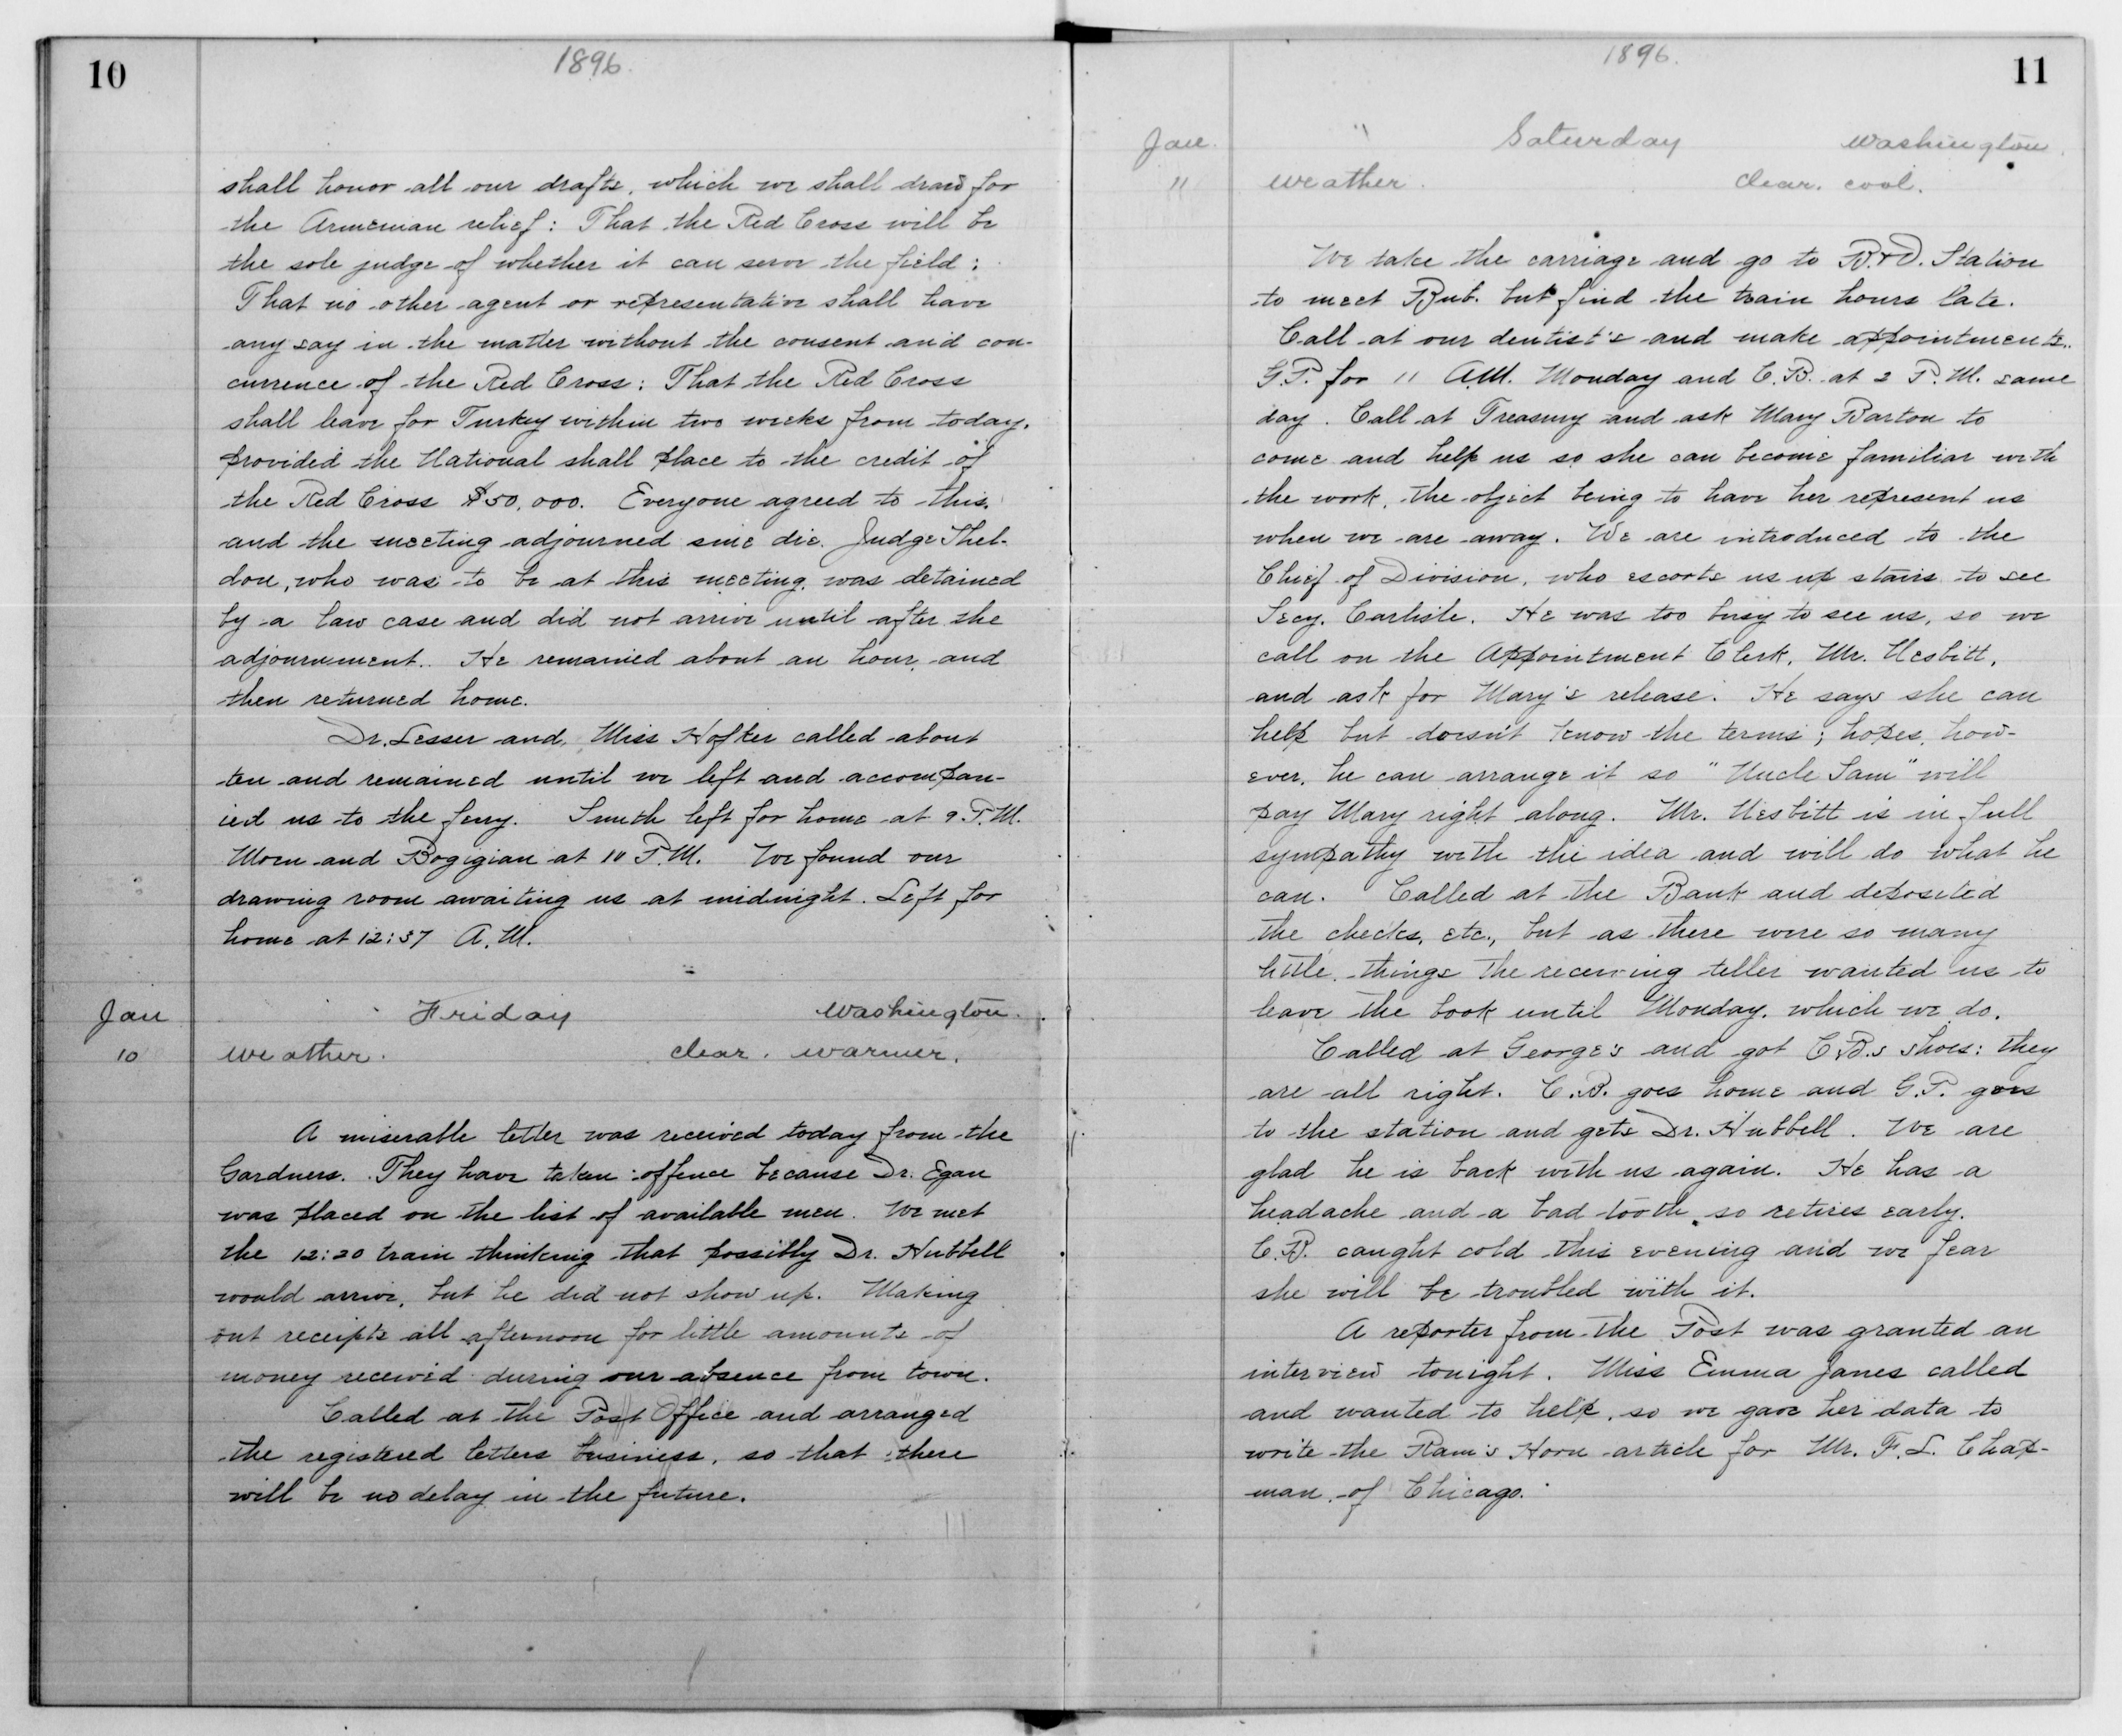 10
1896.
shall honor all our drafts, which we shall draw for
the Armenian relief: That the Red Cross will be
the sole judge of whether it can serve the field:
That no other agent or representative shall have
any say in the matter without the consent and con-
currence of the Red Cross: That the Red Cross
shall leave for Turkey within two weeks from today,
provided the National shall place to the credit of
the Red Cross $50,000. Everyone agreed to this,
and the meeting adjourned sine die. Judge Shel-
don, who was to be at this meeting, was detained
by a law case and did not arrive until after the
adjournment. He remained about an hour, and
then returned home.
Dr. Lesser and Miss Hofker called about
ten and remained until we left and accompan-
ied us to the ferry. Smith left for home at 9 P.M.
Moen and Bogigian at 10 P.M. We found our
drawing room awaiting us at midnight. Left for
home at 12:37 A.M.
Jan Friday Washington.
10 weather. clear. warmer.
A miserable letter was received today from the
Gardners. They have taken offence because Dr. Egan
was placed on the list of available men. We met
the 12:20 train thinking that possibly Dr. Hubbell
would arrive, but he did not show up. Making
out receipts all afternoon for little amounts of
money received during our absence from town.
Called at the Post Office and arranged
the registered letters business, so that there
will be no delay in the future.
1896.
11
Jan. " Saturday Washington.
11 weather. clear. cool.
We take the carriage and go to B.&O. Station
to meet Bub. but find the train hours late.
Call at our dentist's and make appointments.
G.P. for 11 A.M. Monday and C.B. at 2 P.M. same
day. Call at Treasury and ask Mary Barton to
come and help us so she can become familiar with
the work, the object being to have her represent us
when we are away. We are introduced to the
Chief of Division, who escorts us up stairs to see
Secy. Carlisle. He was too busy to see us, so we
call on the Appointment Clerk, Mr. Nesbitt,
and ask for Mary's release. He says she can
help but doesn't know the terms; hopes, how-
ever, he can arrange it so "Uncle Sam" will
pay Mary right along. Mr. Nesbitt is in full
sympathy with the idea and will do what he
can. Called at the Bank and deposited
the checks, etc., but as there were so many
little things the receiving teller wanted us to
leave the book until Monday, which we do.
Called at George's and got C.B.s shoes: they
are all right. C.B. goes home and G.P. goes
to the station and gets Dr. Hubbell. We are
glad he is back with us again. He has a
headache and a bad tooth, so retires early.
C.B. caught cold this evening and we fear
she will be troubled with it.
A reporter from the Post was granted an
interview tonight. Miss Emma Janes called
and wanted to help, so we gave her data to
write the Ram's Horn article for Mr. F.L. Chap-
man, of Chicago.